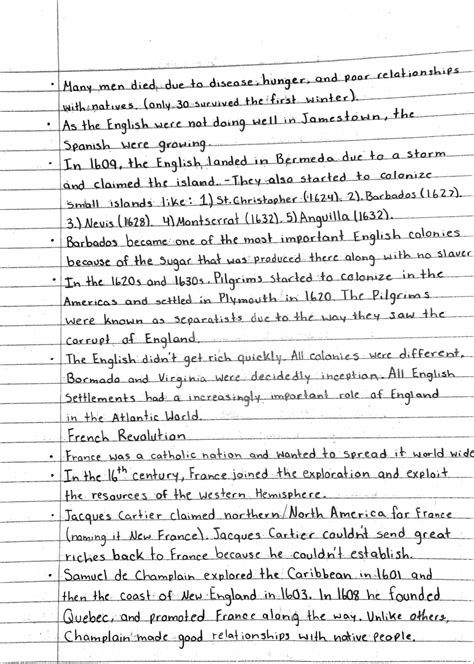 • Many men died, due to disease, hunger, and poor relationships
with natives. (only 30 survived the first winter).
• As the English were not doing well in Jamestown, the
Spanish were growing.
• In 1609, the English landed in Bermeda due to a storm
and claimed the island. - They also started to colonize
small islands like: 1) St. Christopher (1624). 2). Barbados (1627).
3.) Nevis (1628). 4) Montserrat (1632). 5) Anguilla (1632).
• Barbados became one of the most important English colonies
because of the sugar that was produced there along with no slaver
• In the 1620s and 1630s, Pilgrims started to colonize in the
Americas and settled in Plymouth in 1620. The Pilgrims
were known as separatists due to the way they saw the
corrupt of England.
• The English didn't get rich quickly. All colonies were different,
Bormado and Virginia were decidedly inception. All English
Settlements had a increasingly important role of England
in the Atlantic World.
French Revolution
• France was a catholic nation and wanted to spread it world wide
• In the 16th century, France joined the exploration and exploit
the resources of the Western Hemisphere.
• Jacques Cartier claimed northern/North America for France
(naming it New France). Jacques Cartier couldn't send great
riches back to France because he couldn't establish.
• Samuel de Champlain explored the Caribbean in 1601 and
then the coast of New England in 1603. In 1608 he founded
Quebec, and promoted France along the way. Unlike others,
Champlain made good relationships with native people.